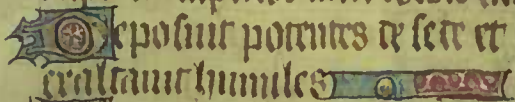 Deposuit potentes de sede et
exaltauit humiles